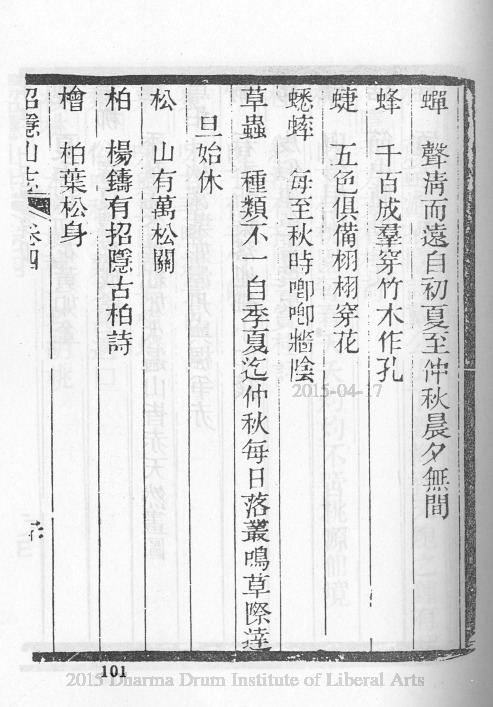 蟬　聲淸而遠自初夏至仲秋晨夕無間
蜂　千百成羣穿竹木作孔
蜨　五色俱備栩栩穿花
蟋蟀　每至秋時喞喞牆陰
草蟲　種類不一自季夏迄仲秋每日落叢鳴草際達
旦始休
松　山有萬松關
柏　楊鑄有招隱古柏詩
檜　柏葉松身
招隱山志 卷四
101
2015-04-17
2015 Dharma Drum Institute of Liberal Arts